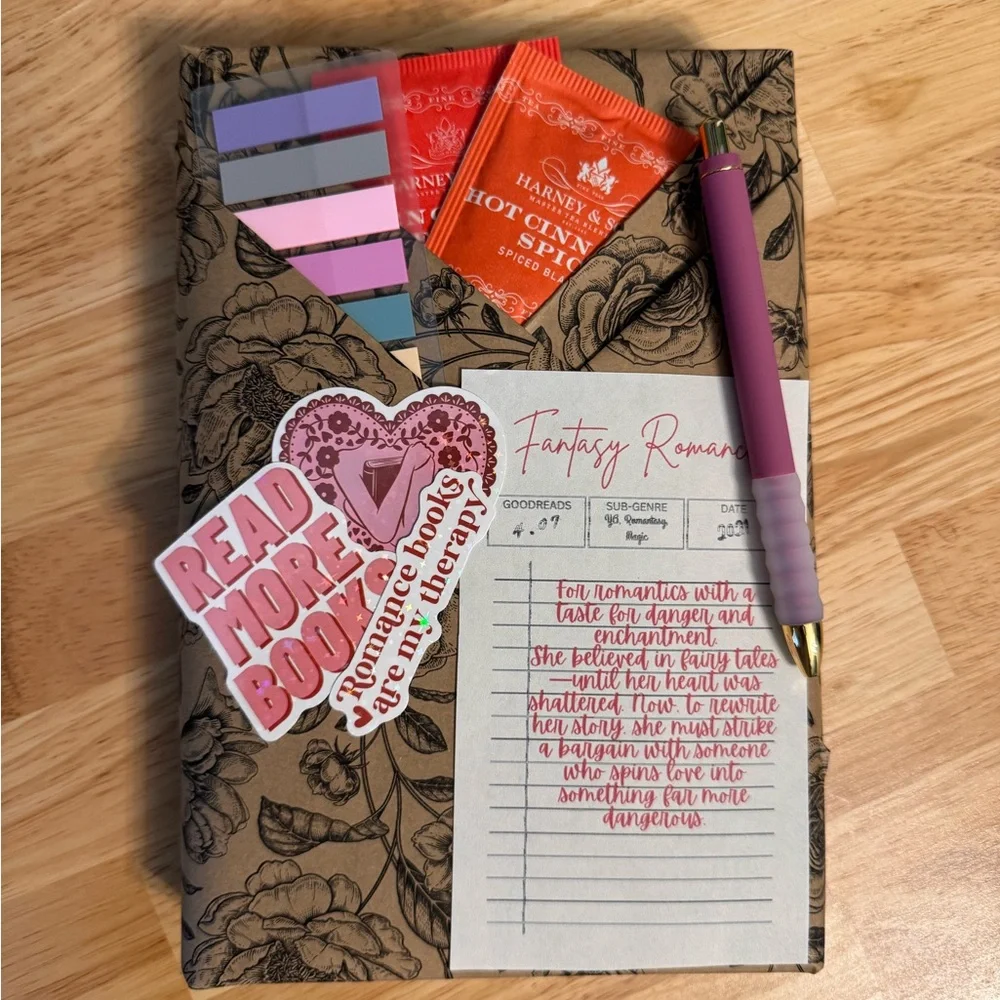 FINE
HARNEY & S
MASTER TEA BLEN
HOT CINN
SPIC
SPICED BLA
READ
MORE
BOOKS
Romance books
are my therapy
Fantasy Romanc
GOODREADS
4.07
SUB-GENRE
YA, Romantasy,
Magic
DATE
For romantics with a
taste for danger and
enchantment.
She believed in fairy tales
—until her heart was
shattered. Now, to rewrite
her story, she must strike
a bargain with someone
who spins love into
something far more
dangerous.